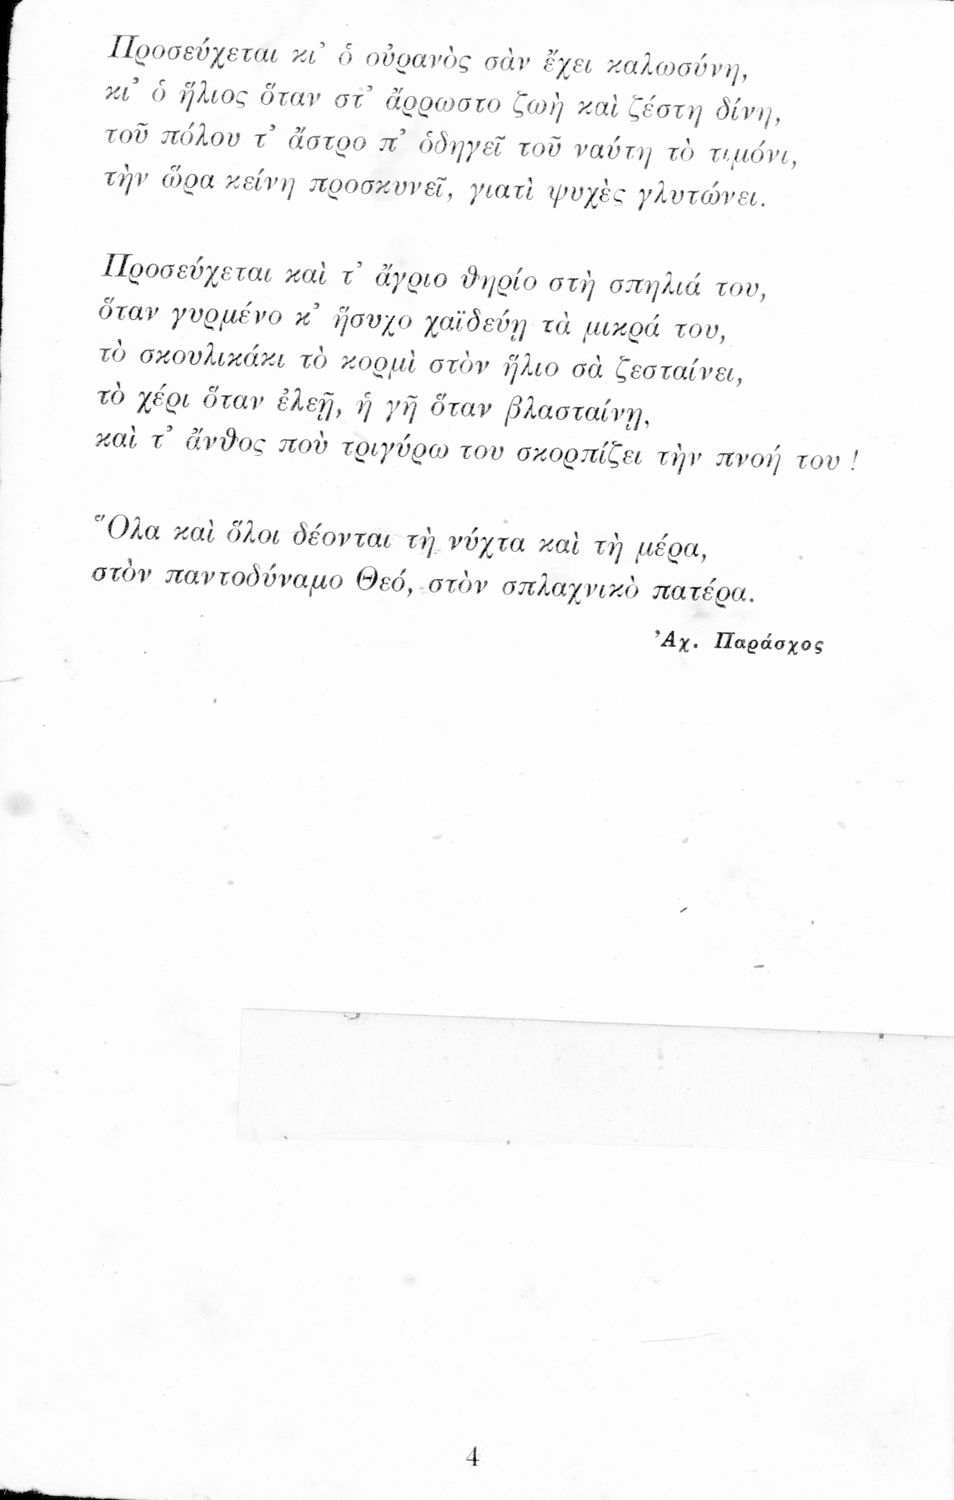 Προσεύχεται κι’ ὁ οὐρανὸς σὰν ἔχει καλωσύνη,
κι’ ὁ ἥλιος ὅταν στ’ ἄρρωστο ζωὴ καὶ ζέστη δίνη,
τοῦ πόλου τ’ ἄστρο π’ ὁδηγεῖ τοῦ ναύτη τὸ τιμόνι,
τὴν ὥρα κείνη προσκυνεῖ, γιατὶ ψυχὲς γλυτώνει.
Προσεύχεται καὶ τ’ ἄγριο θηρίο στὴ σπηλιά του,
ὅταν γυρμένο κ’ ἥσυχο χαϊδεύῃ τὰ μικρά του,
τὸ σκουλικάκι τὸ κορμὶ στὸν ἥλιο σὰ ζεσταίνει,
τὸ χέρι ὅταν ἐλεῇ, ἡ γῆ ὅταν βλασταίνῃ,
καὶ τ’ ἄνθος ποὺ τριγύρω του σκορπίζει τὴν πνοή του !
Ὅλα καὶ ὅλοι δέονται τὴ νύχτα καὶ τὴ μέρα,
στὸν παντοδύναμο Θεό, στὸν σπλαχνικὸ πατέρα.
Ἀχ. Παράσχος
4